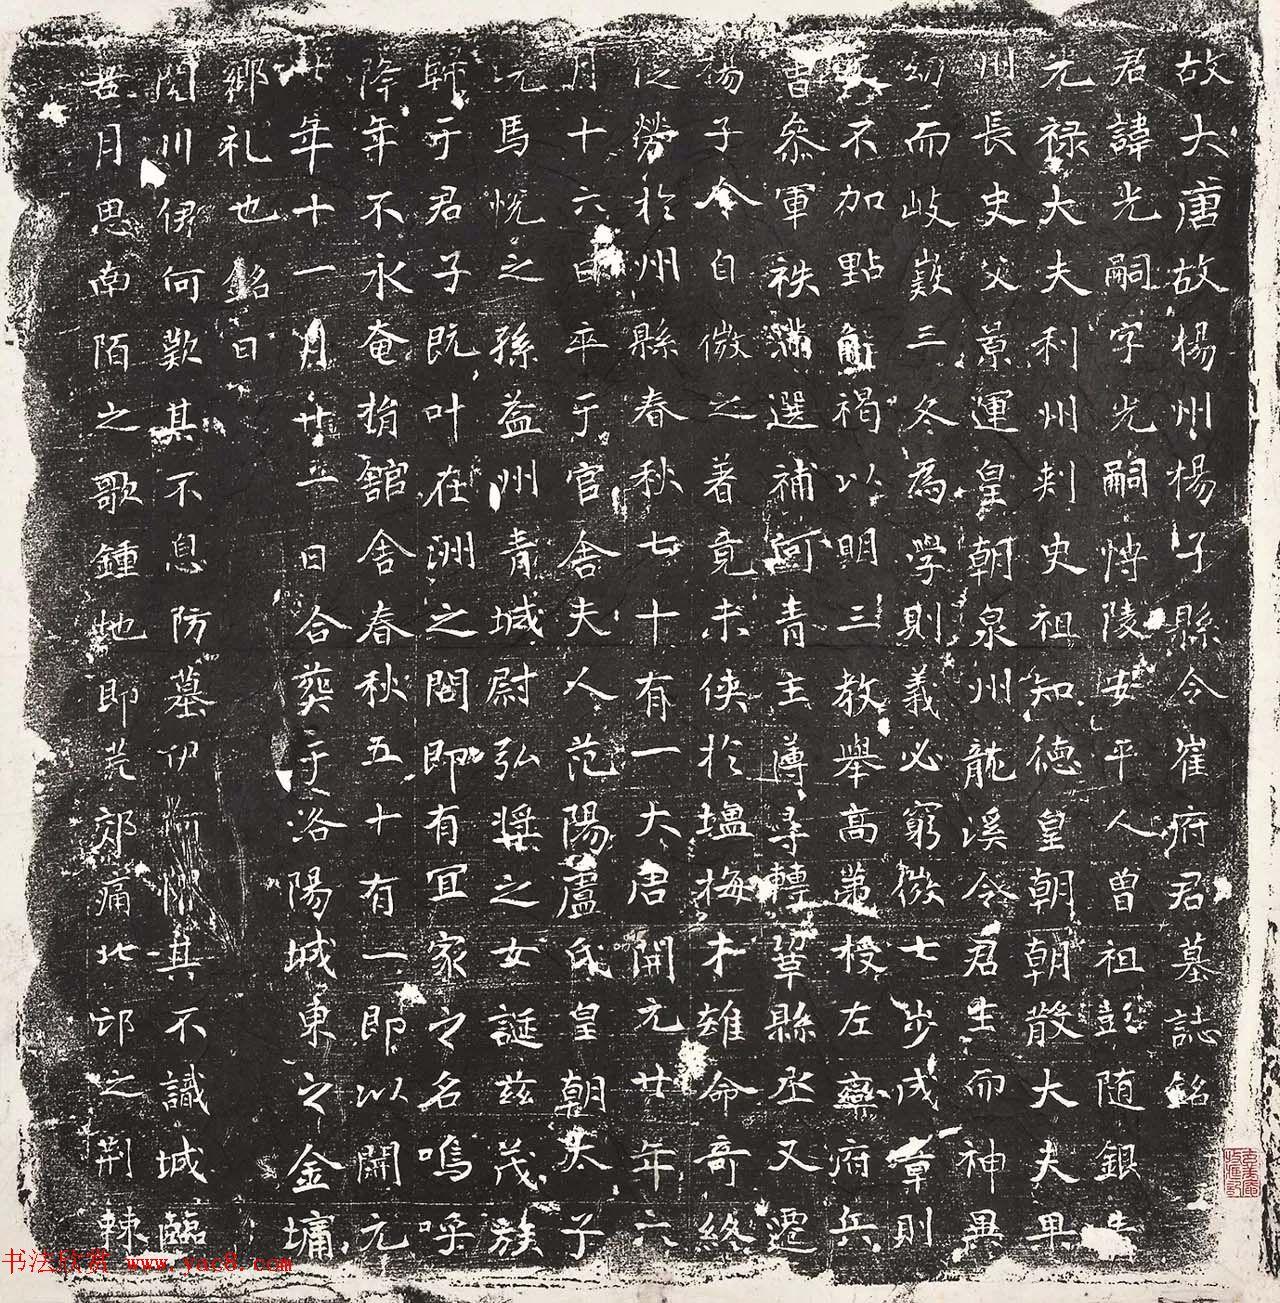 故大唐故楊州楊子縣令崔府君墓誌銘
君諱光嗣字光嗣博陵安平人曾祖彭随銀青
光禄大夫利州刾史祖知德皇朝朝散大夫畢
川長史父景運皇朝泉州龍溪令君生而神異
幼而岐嶷三冬為學則義必窮微七步成章則
文不加點解褐以明三教舉高第授左衛府兵
曹叅軍袟滿選補河青主簿尋轉鞏縣丞又遷
楊子令自微之著竟未侠於塩梅才雄命奇終
從勞於州縣春秋七十有一大唐開元廿年六
月十六日卒于官舍夫人范陽盧氏皇朝太子
洗馬悅之孫益州青城尉弘奬之女誕兹茂族
歸于君子既叶在洲之閤即有宜家之名嗚呼
降年不永奄捐舘舍春秋五十有一即以開元
廿年十一月廿二日合葬于洛陽城東之金墉
鄉礼也銘曰
閱川伊何歎其不息防墓伊何其不識城臨
昔月思南陌之歌鍾地即荒郊痛北邙之荆棘
书法欣赏 www.yac8.com